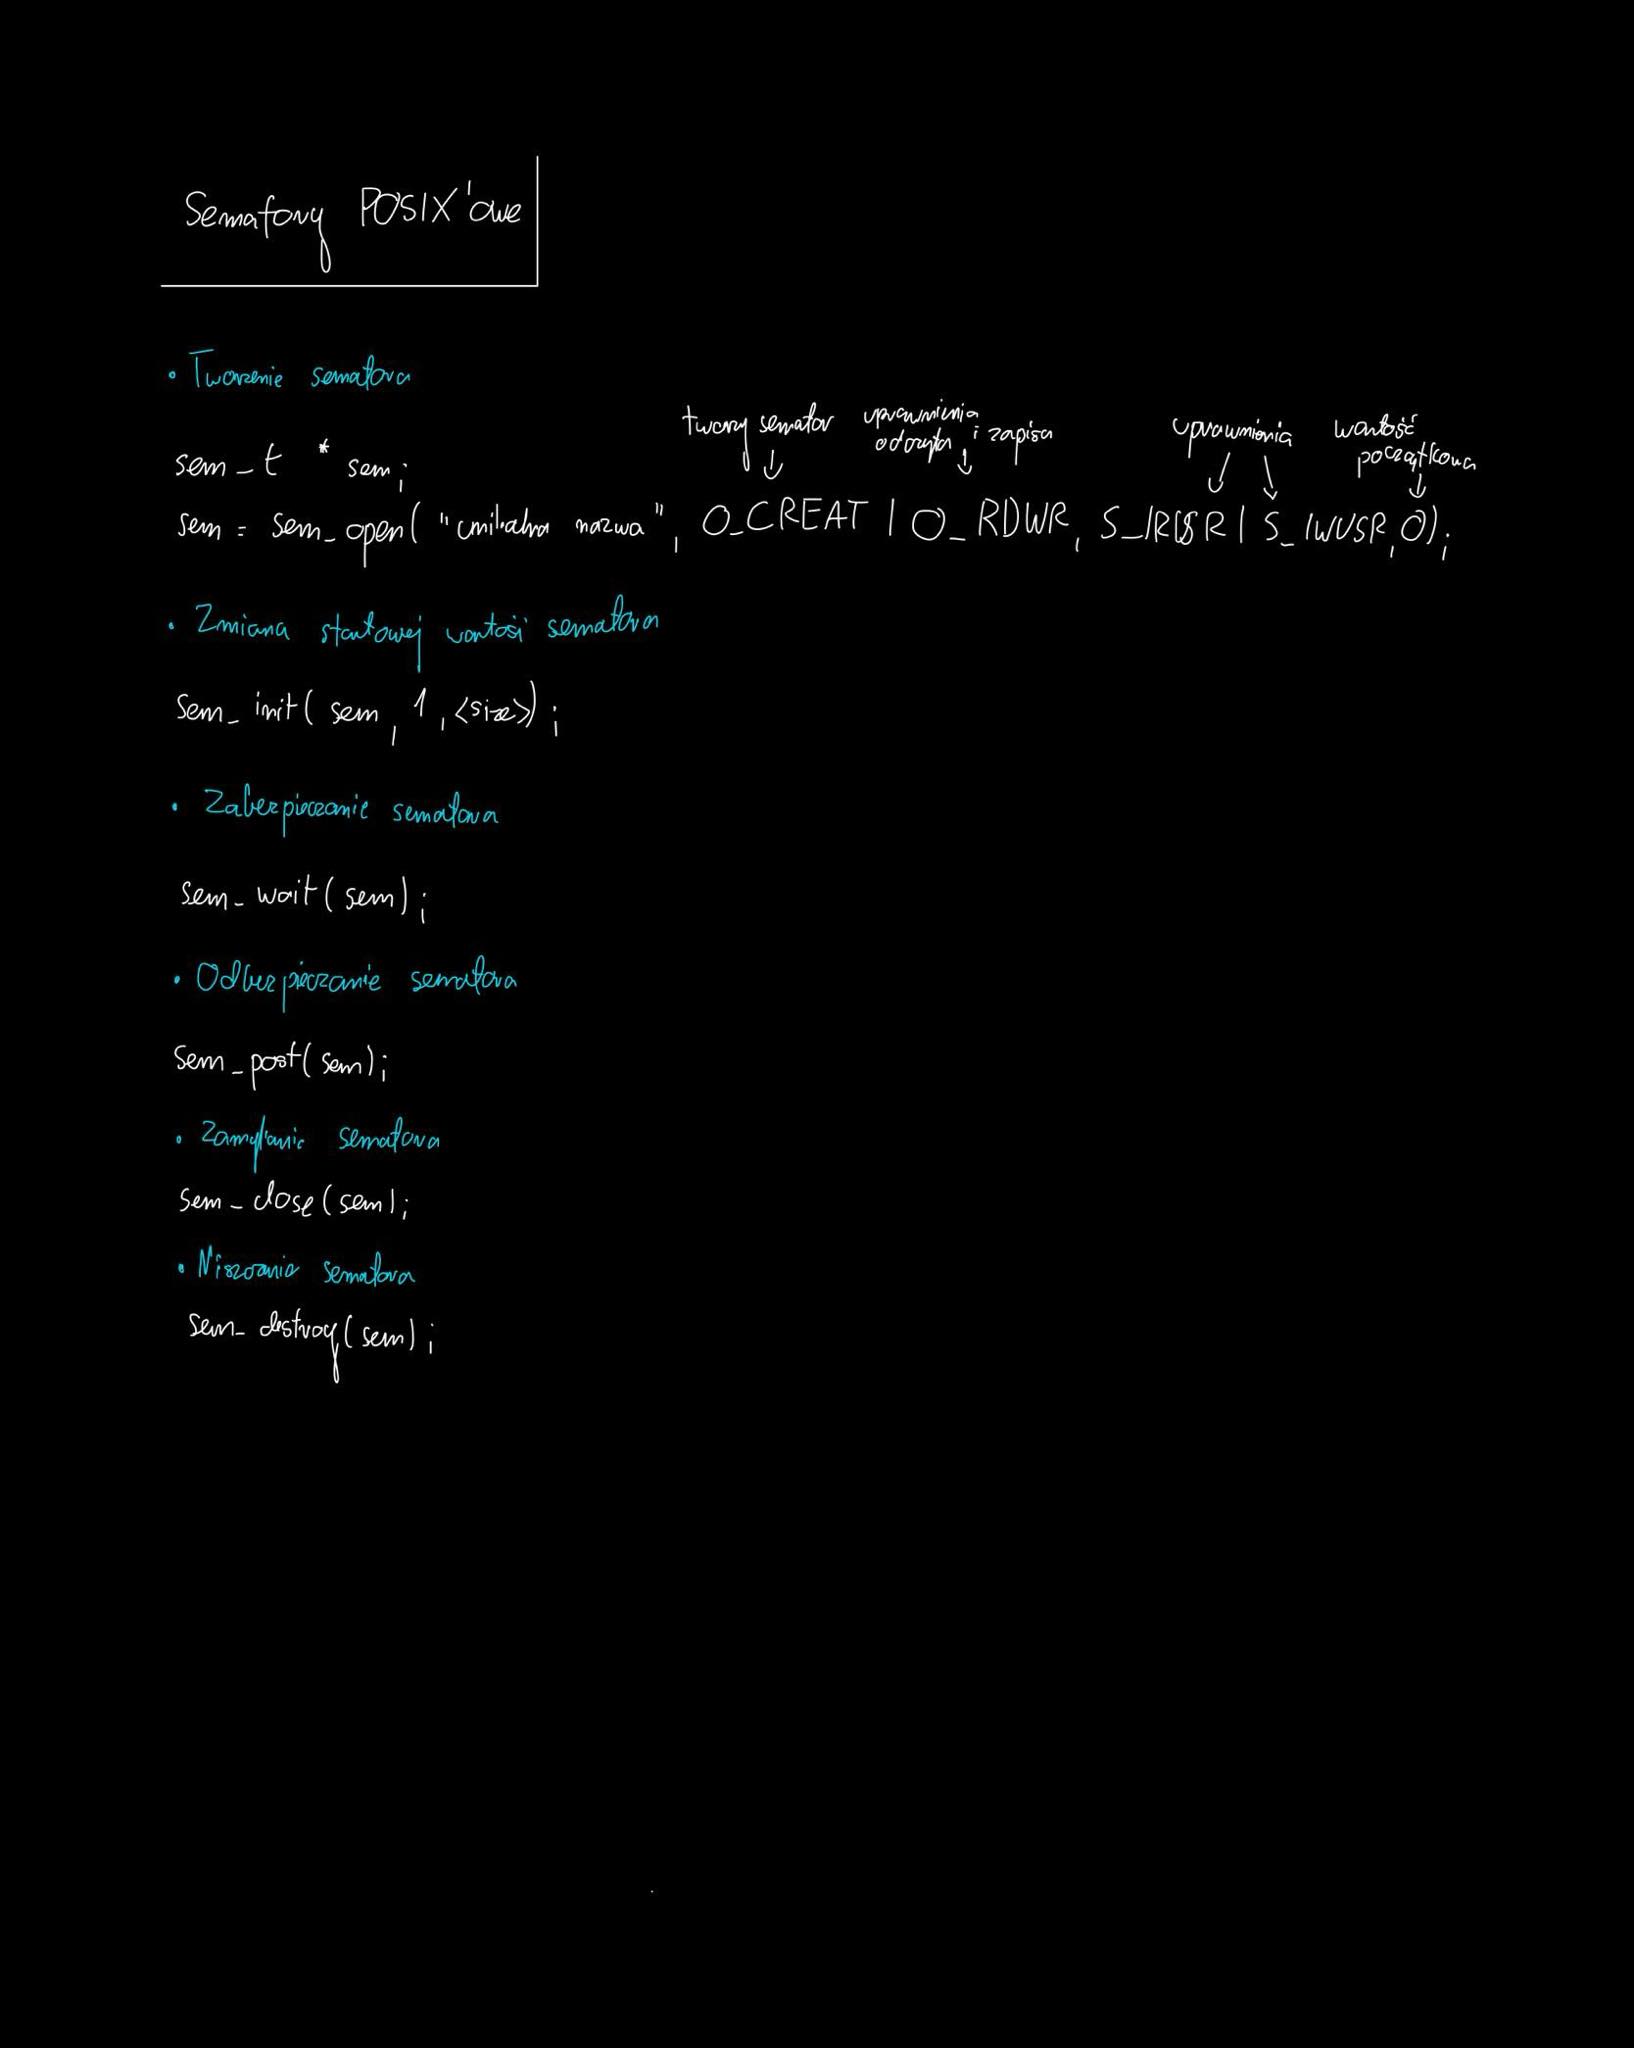 Semafory POSIX'owe
• Tworzenie semafora
tworzy semafor uprawnienia odczytu i zapisu uprawnienia wartość początkowa
sem_t * sem;
sem = sem_open( "unikalna nazwa", O_CREAT | O_RDWR, S_IRUSR | S_IWUSR, 0);
• Zmiana startowej wartości semafora
sem_init( sem, 1, <size>);
• Zabezpieczanie semafora
sem_wait( sem);
• Odbezpieczanie semafora
sem_post( sem);
• Zamykanie semafora
sem_close( sem);
• Niszczenie semafora
sem_destroy( sem);